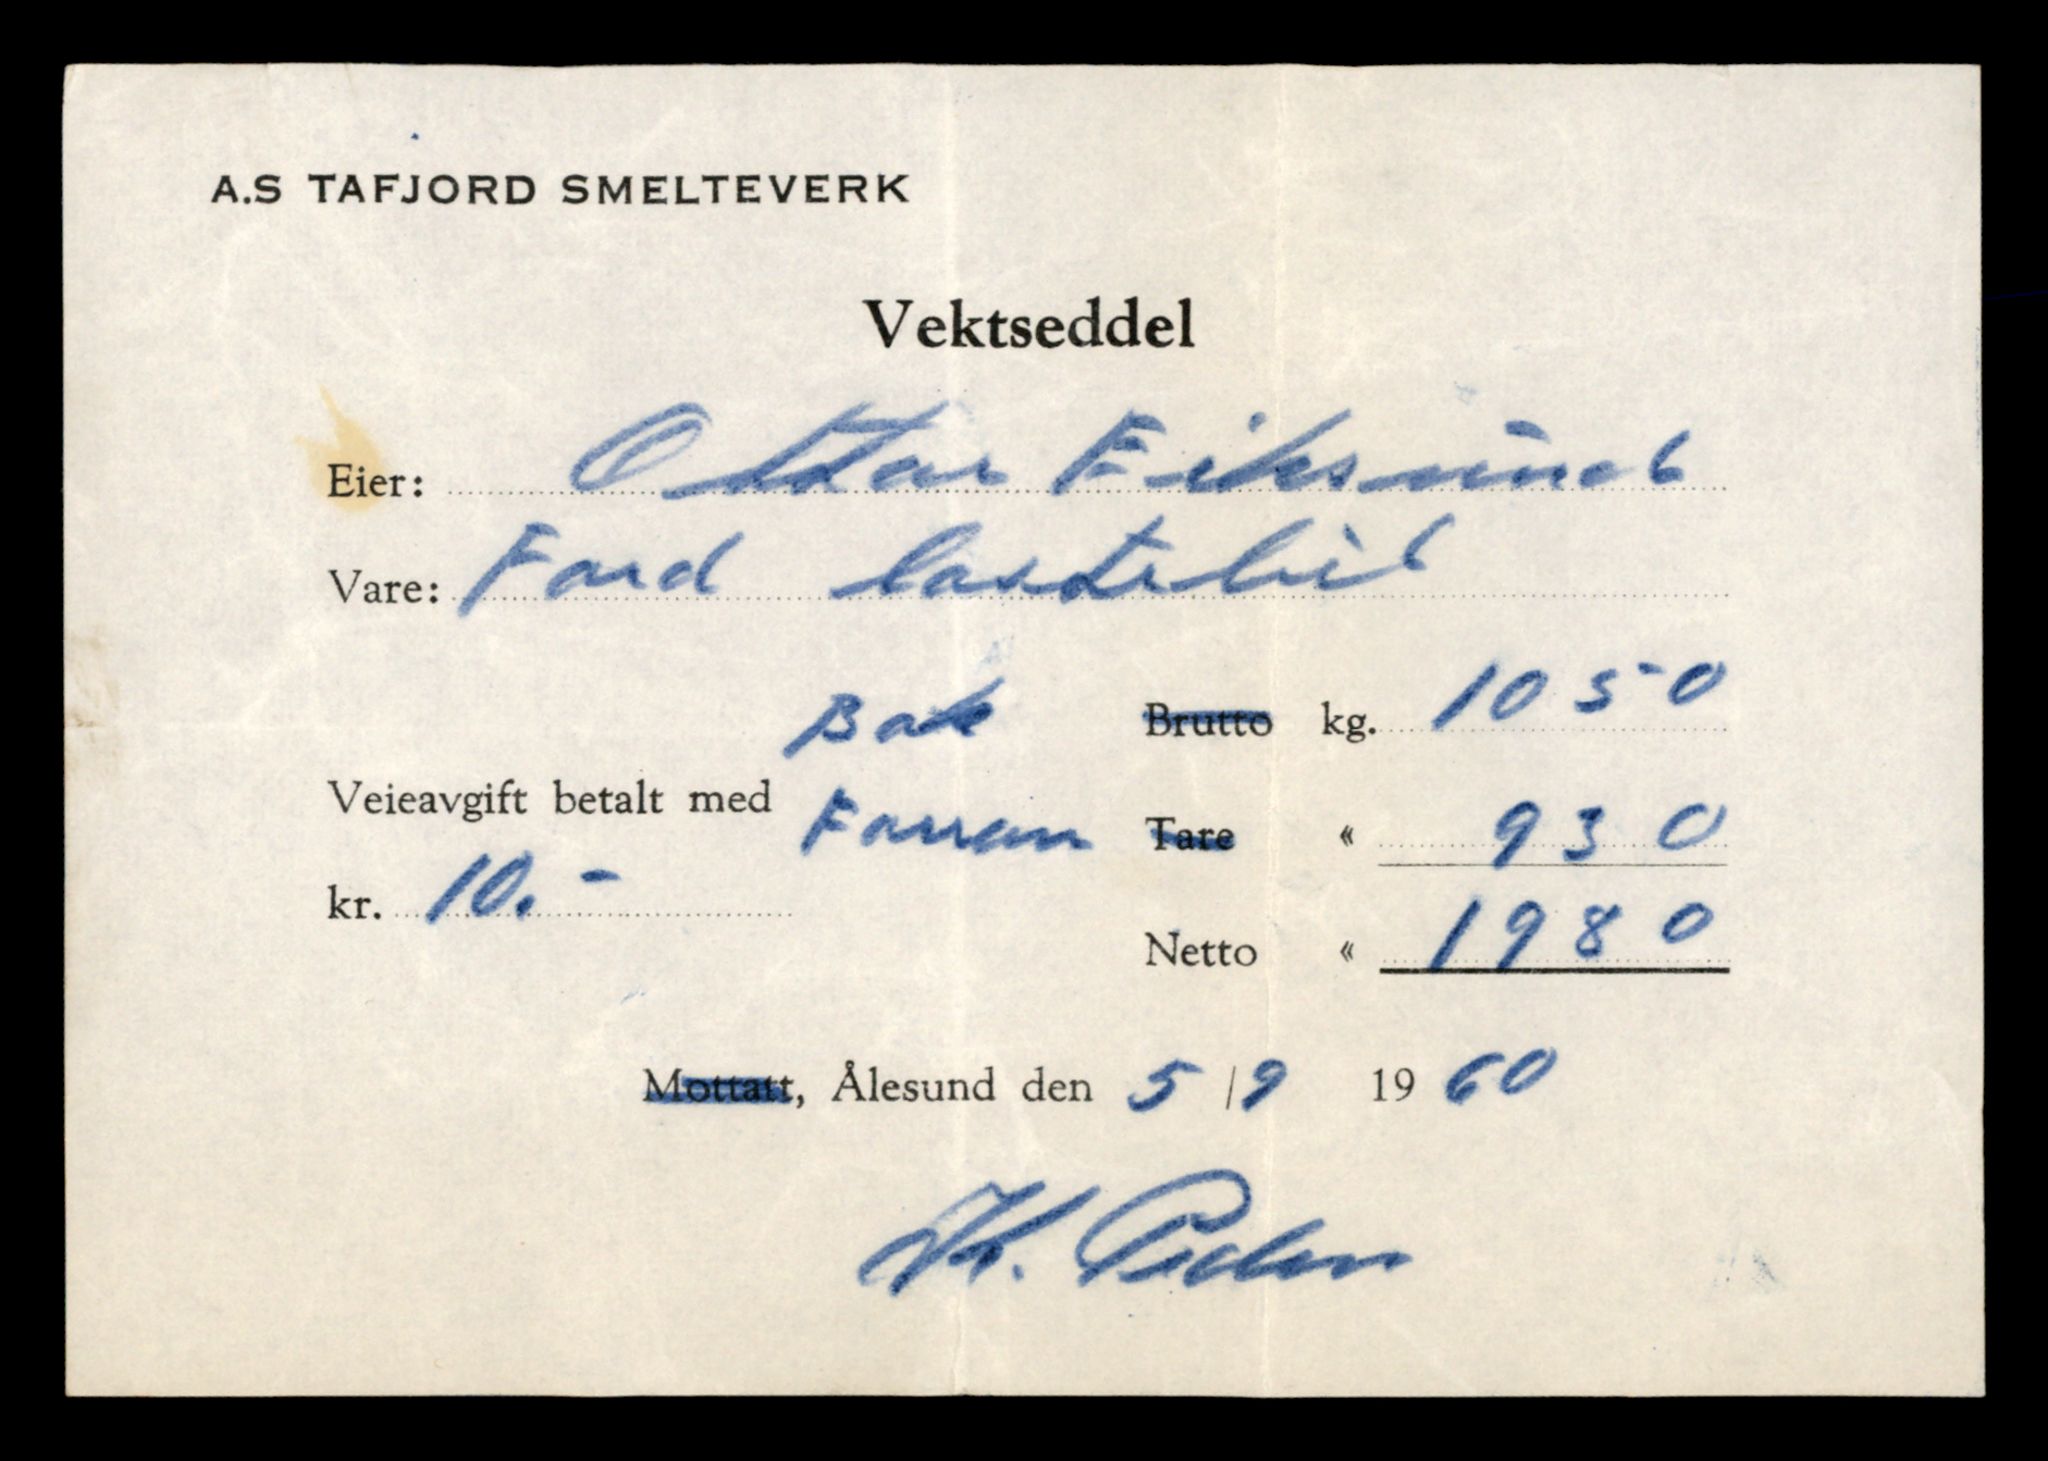 A.S TAFJORD SMELTEVERK
Vektseddel
Eier: Ottar Eiksund
Vare: Ford lastebil
Bak Brutto kg. 1050
Veieavgift betalt med Farran Tare « 930
kr. 10.-
Netto « 1980
Mottatt, Ålesund den 5/9 1960